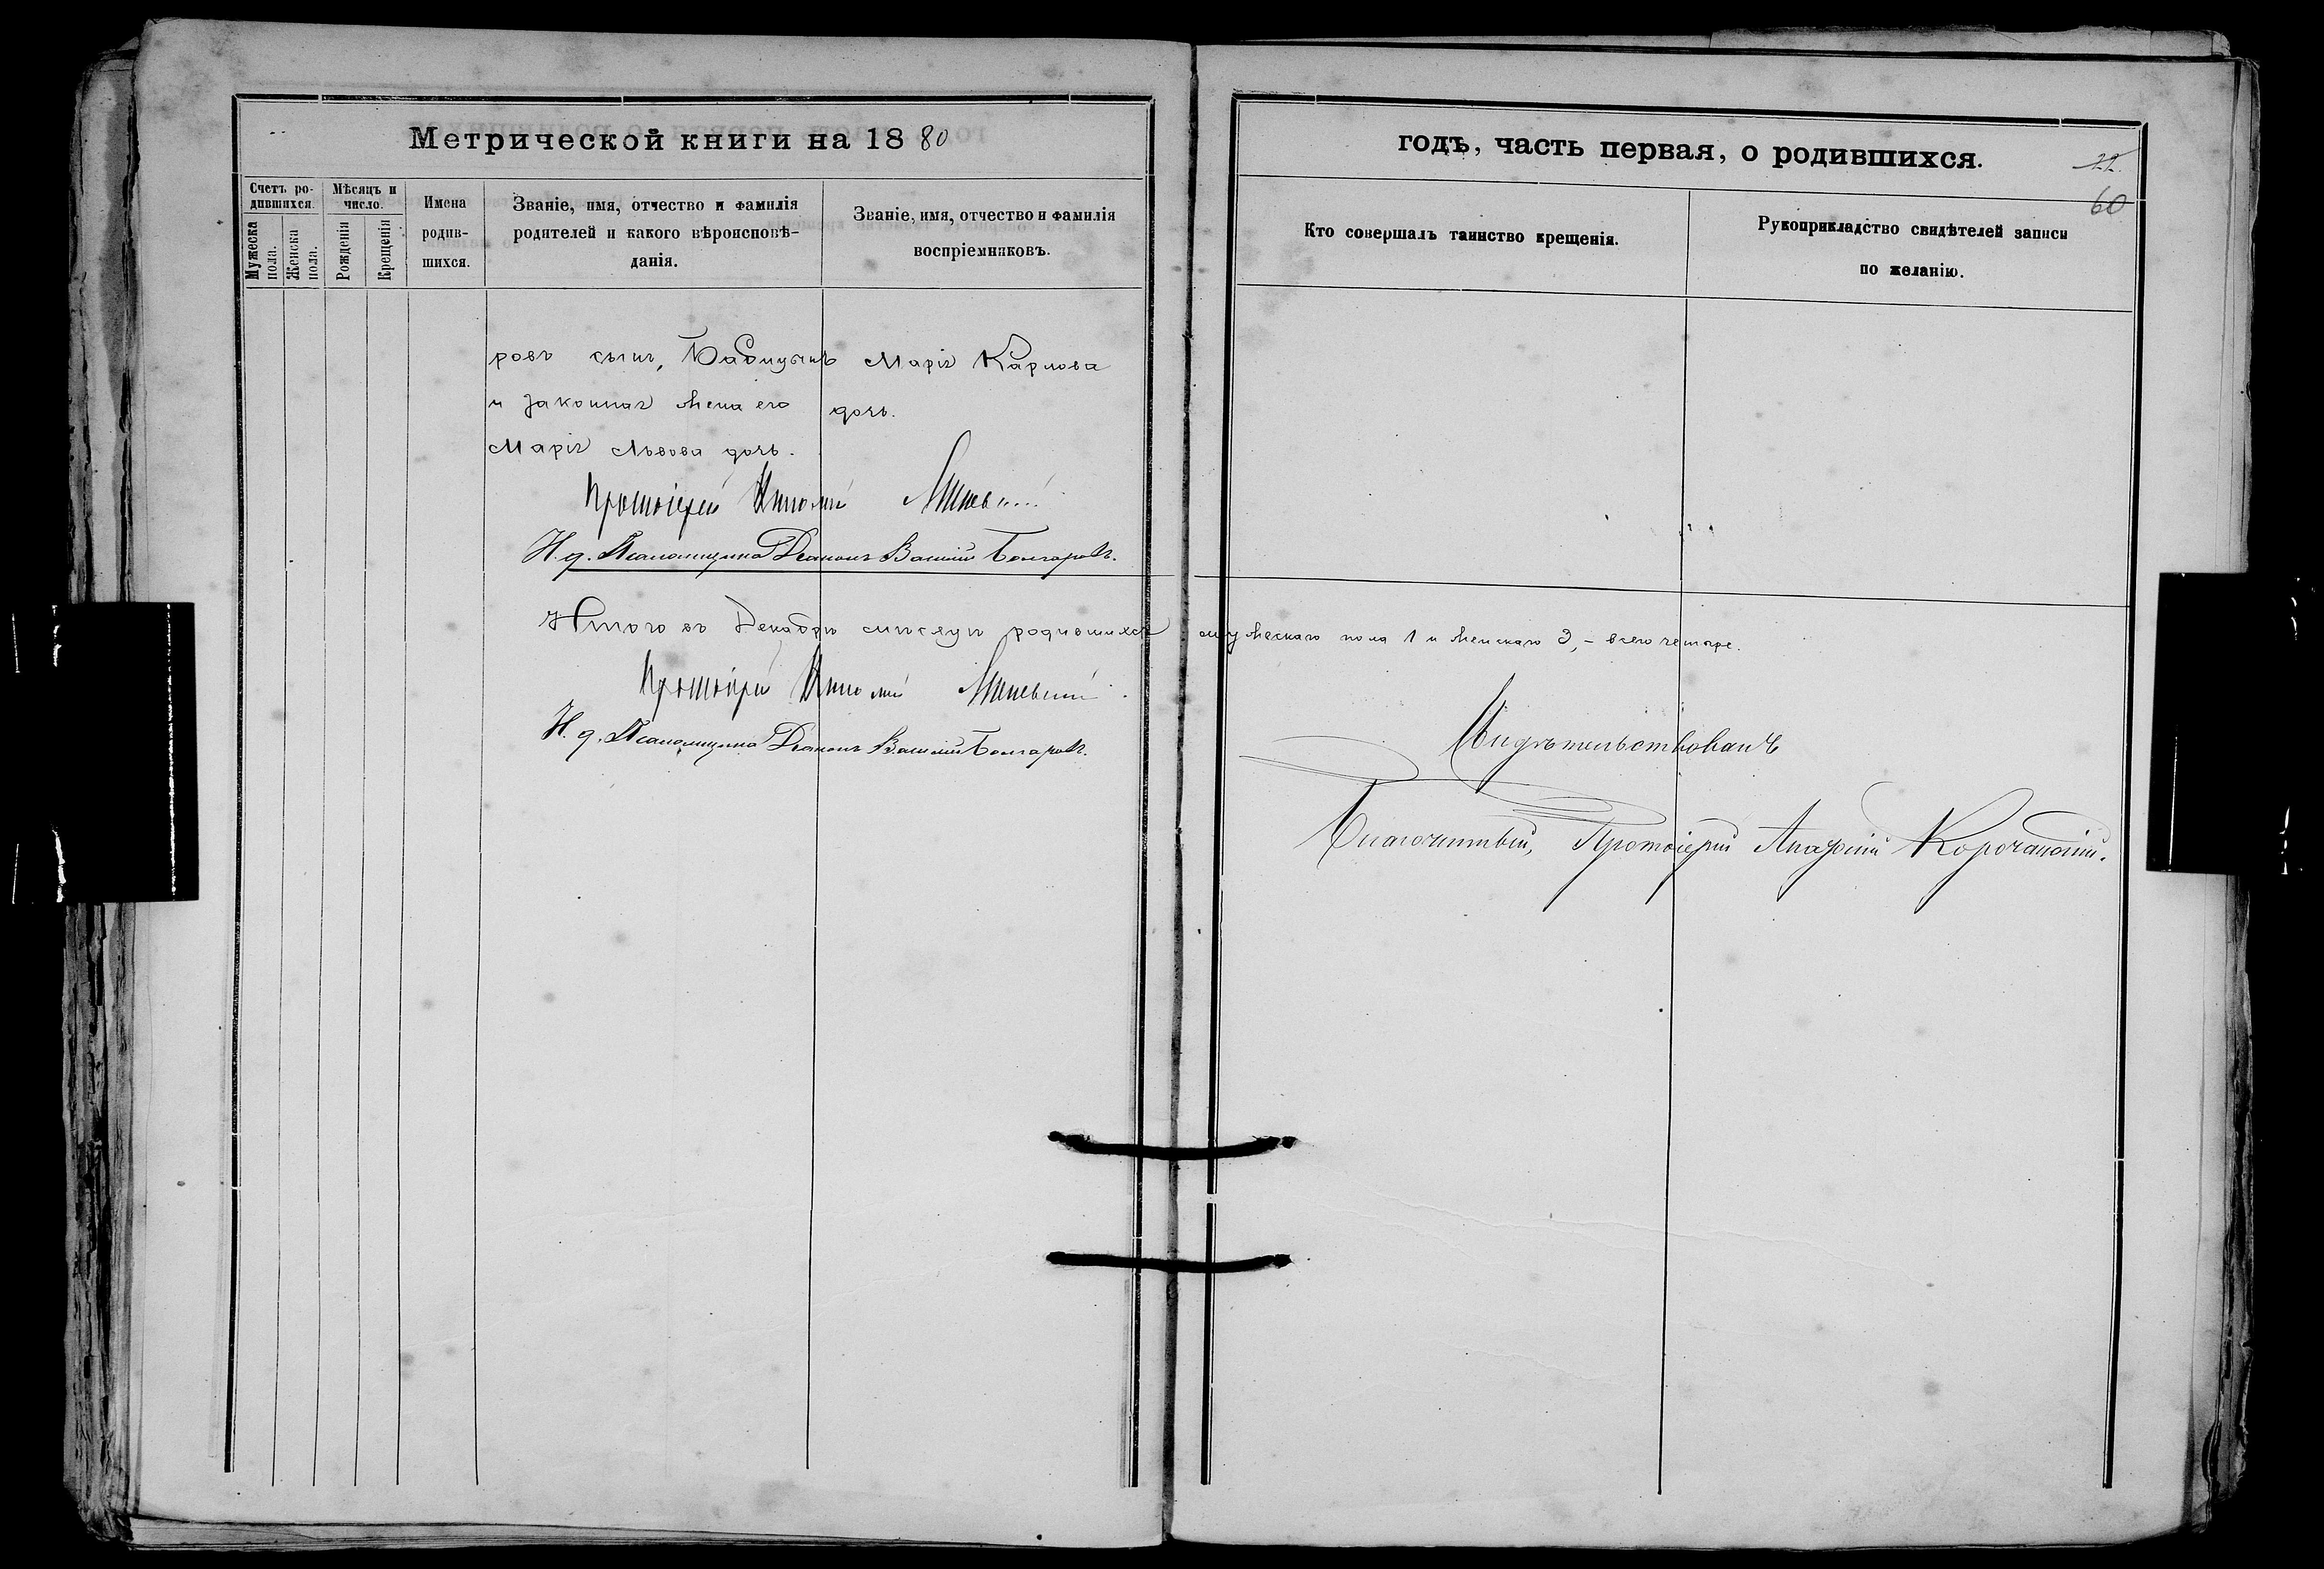 Метрической книги на 1880
годъ, часть первая, о родившихся.
22.
60
Счетъ ро-
дившихся.
Мужеска
пола.
Женска
пола.
Мѣсяцъ и
число.
Рожденія
Крещенія
Имена
родив-
шихся.
Званіе, имя, отчество и фамилія
родителей и какого вѣроисповѣ-
данія.
Званіе, имя, отчество и фамилія
воспріемниковъ.
Кто совершалъ таинство крещенія.
Рукоприкладство свидѣтелей записи
по желанію.
ровъ сынъ,
и законная жена его
Марія Львова дочь.
Марія Карлова
дочь.
Протоіерей
И. д. Псаломщика Діаконъ Василій Болгаровъ.
Итого въ Декабрѣ мѣсяцѣ родившихся мужескаго пола 1 и женскаго 3, – всего четыре.
Протоіерей
И. д. Псаломщика Діаконъ Василій Болгаровъ.
Свидѣтельствовалъ
Благочинный, Протоіерей